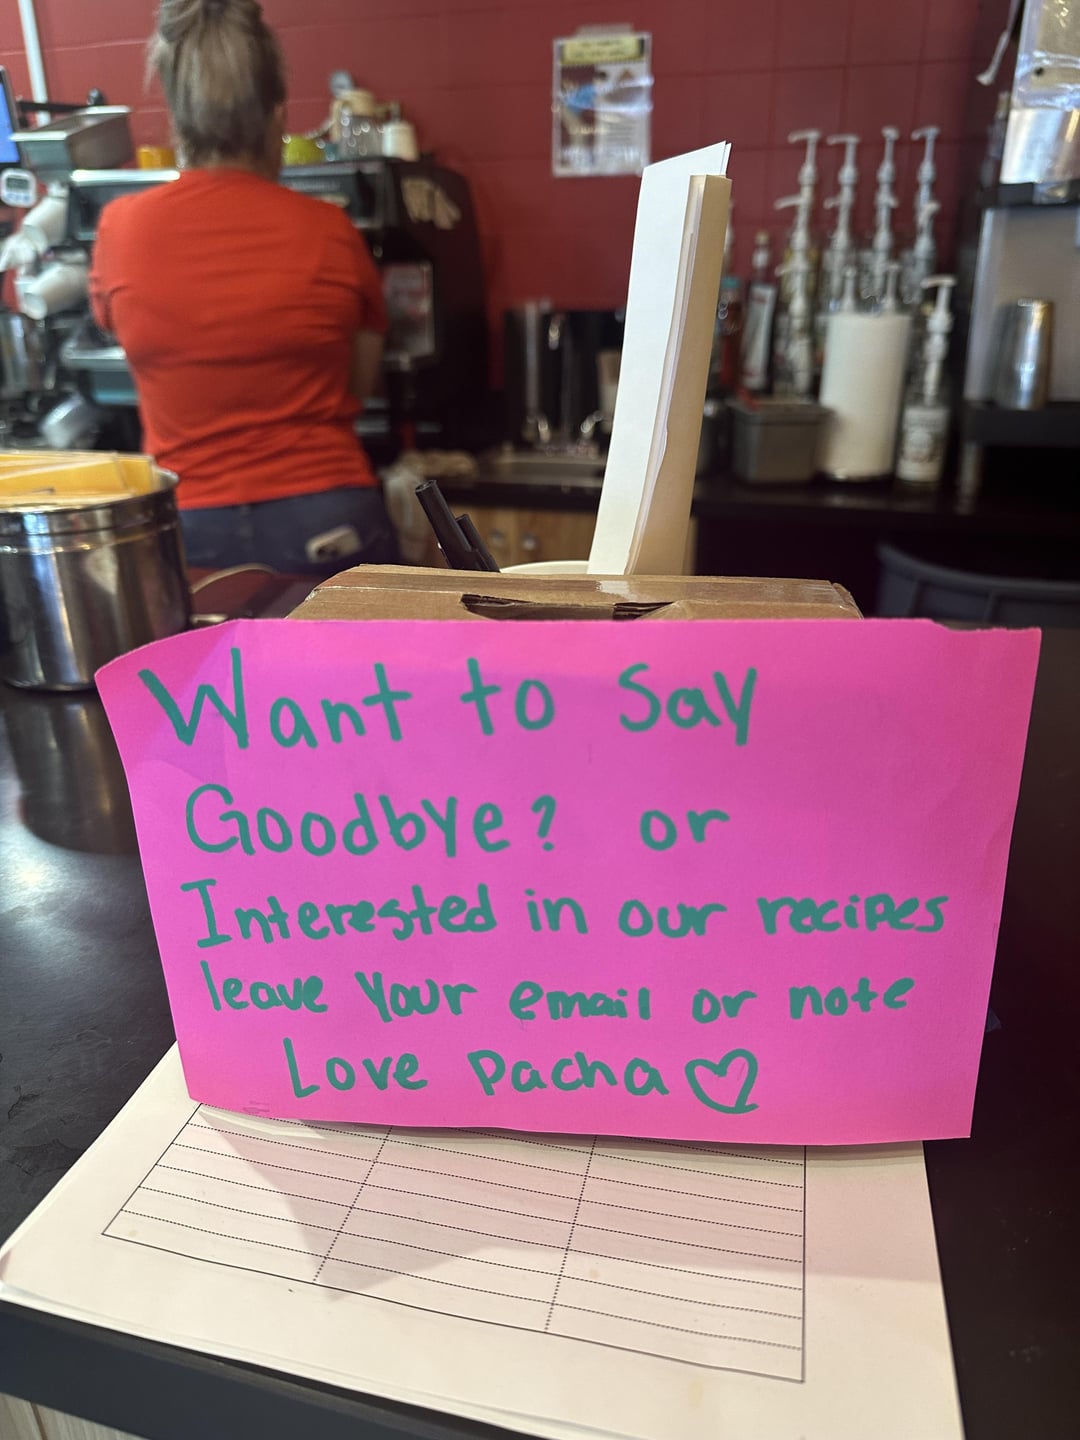 Want to Say
Goodbye? or
Interested in our recipes
leave your email or note
Love Pacha